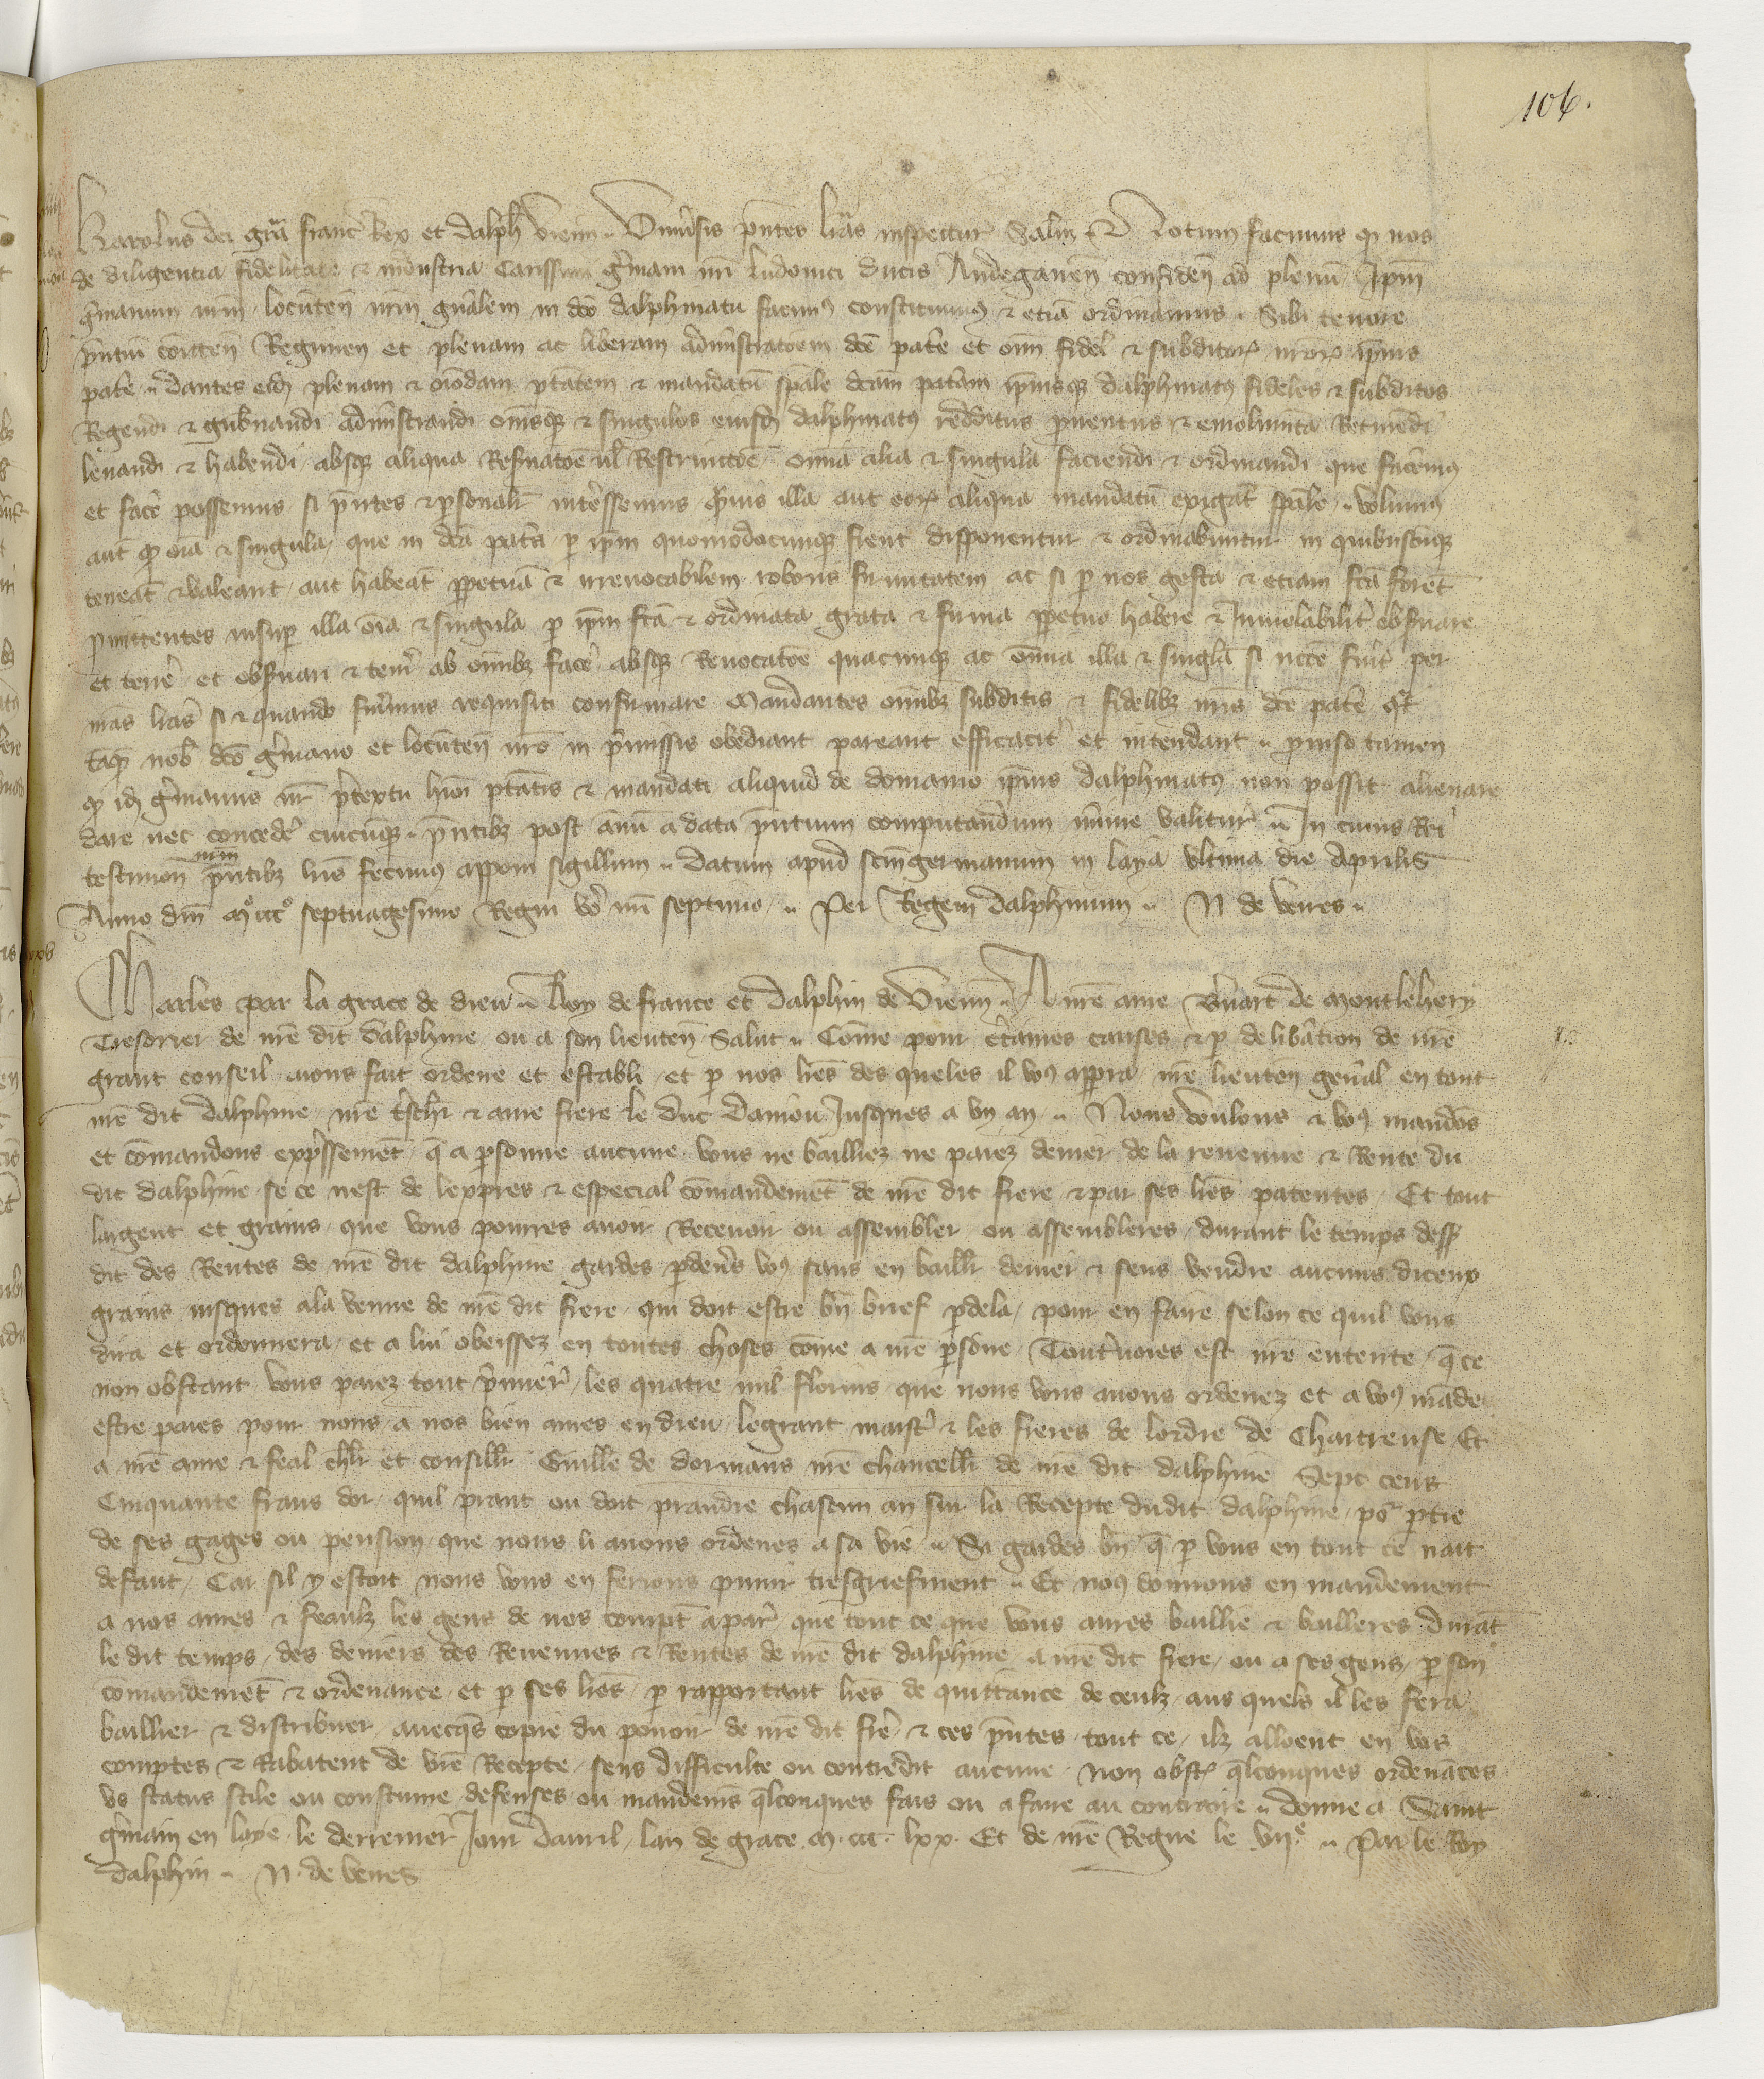 106.
Karolus dei gr̃a franc̃ Rex et dalph̃ vienn̄. Uniũsis p̃ntes lr̃as inspectur̃ Salm̃. Notum facimus q̃ nos
de diligentia fidelitate & industria Carissimi g̃mani nr̃i ludovici ducis Andegaven̄ confiden̄ ad plenũ Ip̃m
g̃manum nr̃m locũten̄ nr̃m gñalem in dc̃o dalphinatu facim⁹ constituim⁹ & etiã ordinamus. Sibi tenore
p̃ntiũ cõmitten̄ Regimen et plenam ac liberam adm̃istratõem dc̃e patr̃e et om̃i fidel̃ & subditoꝝ nr̃oꝝ ip̃ius
patr̃e. dantes eidẽ plenam & om̃odam p̃tãtem & mandatũ sp̃ale dc̃am patr̃am ip̃iusq̃ dalphinat⁹ fideles & subditos
Regendi & gub̃nandi adm̃istrandi om̃esq̃ & singulos eiusdẽ dalphinat⁹ redditus p̃ventus & emolumẽta Retinẽdi
levandi & habendi absq̃ aliqua Res̃vatõe ul̃ Restrinctõe om̃ia alia & singula faciendi & ordinandi que facẽm⁹
et facẽ possemus si p̃ntes & p̃sonalr̃ intẽssemus q̃mvis illa aut eoꝝ aliqua mandatũ exigãt sp̃ale. volum⁹
aut̃ q̃ om̃ia & singula que in dc̃a patr̃a p̃ ip̃m quomodocunq̃ fient disponentur & ordinabuntur in quibuscũq̃
teneãt & valeant aut habeãt p̃petuã & irrevocabilem roboris firmitatem ac si p̃ nos gesta & etiam fc̃a foret
p̃mittentes insup̃ illa om̃ia & singula p̃ ip̃m fc̃a & ordinata grata & firma p̃petuo habere & Inviolabilit̃ obs̃vare
et tenẽ et obs̃vari & tenẽi ab om̃ib⁊ facẽ absq̃ Revocatõe quacunq̃ ac om̃ia illa & singl̃a si nec̃e fuẽit per
nr̃as lr̃as si & quando fuẽimus requisiti confirmare Mandantes om̃ib⁊ subditis & fidelib⁊ nr̃is dc̃e patr̃e q̃t
taq̃ nob̃ dc̃o g̃mano et locũten̄ nr̃o in p̃missis obediant pareant efficacit̃ et intendant. p̃viso tamen
q̃ idẽ g̃manus nr̃ p̃textu hui⁹ p̃tãtis & mandati aliquid de domanio ip̃ius dalphinat⁹ non possit alienare
dare nec concedẽ cuicũq̃. p̃ntib⁊ post annũ a data p̃ntium computandum mĩime valitur̃. In cuius Rei
testimon̄ nr̃m p̃ntib⁊ lr̃is fecim⁹ apponi sigillum. Datum apud sc̃m germanum in laya ultima die Aprilis
Anno dm̃ M⁰ccc⁰ septuagesimo Regni v̊o nr̃i septimo. Per Regem dalphinum. N de veires.
Charles par la grace de dieu Roy de france et dalphin de vienn̄. A nr̃e ame B̃nart de Montlehery
Tresorier de nr̃e dit dalphine ou a son lieuten̄ Salut. Cõme pour c̃taines causes & p̃ delibãtion de nr̃e
grant conseil aions fait ordene et establi et p̃ nos lr̃es des queles il vo⁹ appra nr̃e lieuten̄ geñal en tout
nr̃e dit dalphine nr̃e t̃sch̃r & ame frere le duc danjou Jusques a un an. Nous voulons & vo⁹ mandõs
et cõmandons exp̃ssemẽt q̃ a p̃sonne aucune vous ne bailliez ne paiez denier de la revenue & Rente du
dit dalphine se ce nest de lexpres & especial cõmandemẽt de nr̃e dit frere & par ses lr̃es patentes. Et tout
largent et grains que vous pourres avoir Recevoir ou assembler ou assembleres durant le temps dess̃
dit des Rentes de nr̃e dit dalphine gardes p̃dev̊s vo⁹ sans en baill̃r denier & sens vendre aucuns diceux
grains jusques ala venue de nr̃e dit frere qui doit estre bñ brief p̃dela pour en faire selon ce quil vous
dira et ordonnera et a lui obeissez en toutes choses cõme a nr̃e p̃sone. Toutẽvoies est nr̃e entente q̃ ce
non obstant vous paiez tout p̃mier̃ les quatre mil florins que nous vous avons ordenez et a vo⁹ mãde
estre paies pour nous a nos bien ames en dieu le grant maist̃ & les freres de lordre de Chartreuse Et
a nr̃e ame & feal chl̃r et consill̃r Guill̃e de dormans nr̃e chancell̃r de nr̃e dit dalphine Sept cens
Cinquante frans dor quil prant ou doit prandre chascun an sur la Recepte dudit dalphine po⁹ p̃tie
de ses gages ou pension que nous li avons ordenes a sa vie. Si gardes bñ q̃ p̃ vous en tout ce nait
defaut Car sil y estoit nous vous en ferions punir tresgriefment. Et no⁹ donnons en mandement
a nos ames & feaulz les gens de nos compt̃ a par̃ que tout ce que vous aures baillie & bailleres durãt
le dit temps des deniers des Revenues & Rentes de nr̃e dit dalphine a nr̃e dit frere ou a ses gens p̃ son
comandemẽt & ordenance et p̃ ses lr̃es p̃ rapportant lr̃es de quittance de ceulz aus quels il les fera
baillier & distribuer avecq̃s copie du povoir de nr̃e dit fr̃e & ces p̃ntes tout ce ilz alloent en vos
comptes & Rabatent de vr̃e Recepte sens difficulte ou contredit aucune non obst̃ q̃lconques ordenãces
us status stile ou coustume defenses ou mandemẽs q̃lconques fais ou a faire au contraire. donne a Saint
g̃main en laye le derrenier Jour davril lan de grace M. ccc. lxx. Et de nr̃e Regne le vijᵉ. Par le Roy
dalphin. N. de veires